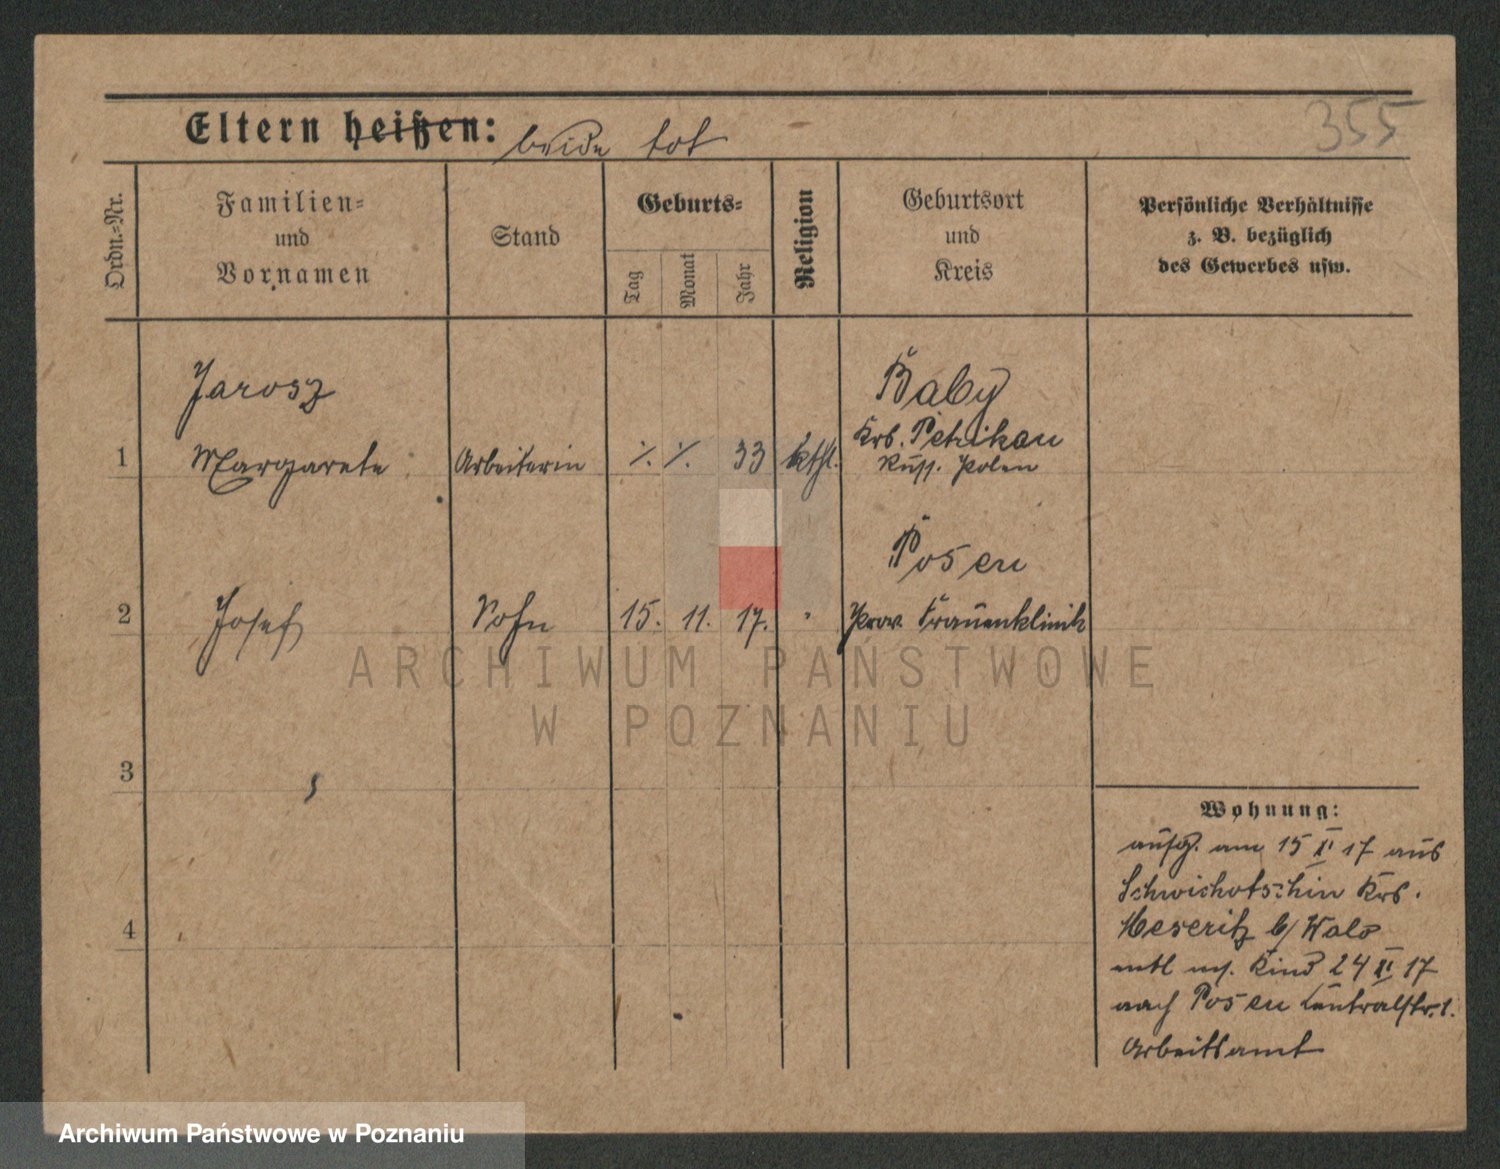 355
Eltern heißen: beide tot
Ordn.-Nr.
Familien-
und
Vornamen
Stand
Geburts-
Tag
Monat
Jahr
Religion
Geburtsort
und
Kreis
Persönliche Verhältnisse
z. B. bezüglich
des Gewerbes usw.
Jarosz Baby
Krs. Petrikau
1 Margarete Arbeiterin ·/. ·/. 33 kath. Russ. Polen
Posen
2 Josef Sohn 15. 11. 17. " Prov. Frauenklinik
3
4
Wohnung:
aufg. am 15 XI 17 aus
Schwichotschin Krs.
Meseritz b/
entl m. Kind 24 XI 17
nach Posen Zentralstr. 1.
Arbeitsamt
ARCHIWUM PAŃSTWOWE
W POZNANIU
Archiwum Państwowe w Poznaniu